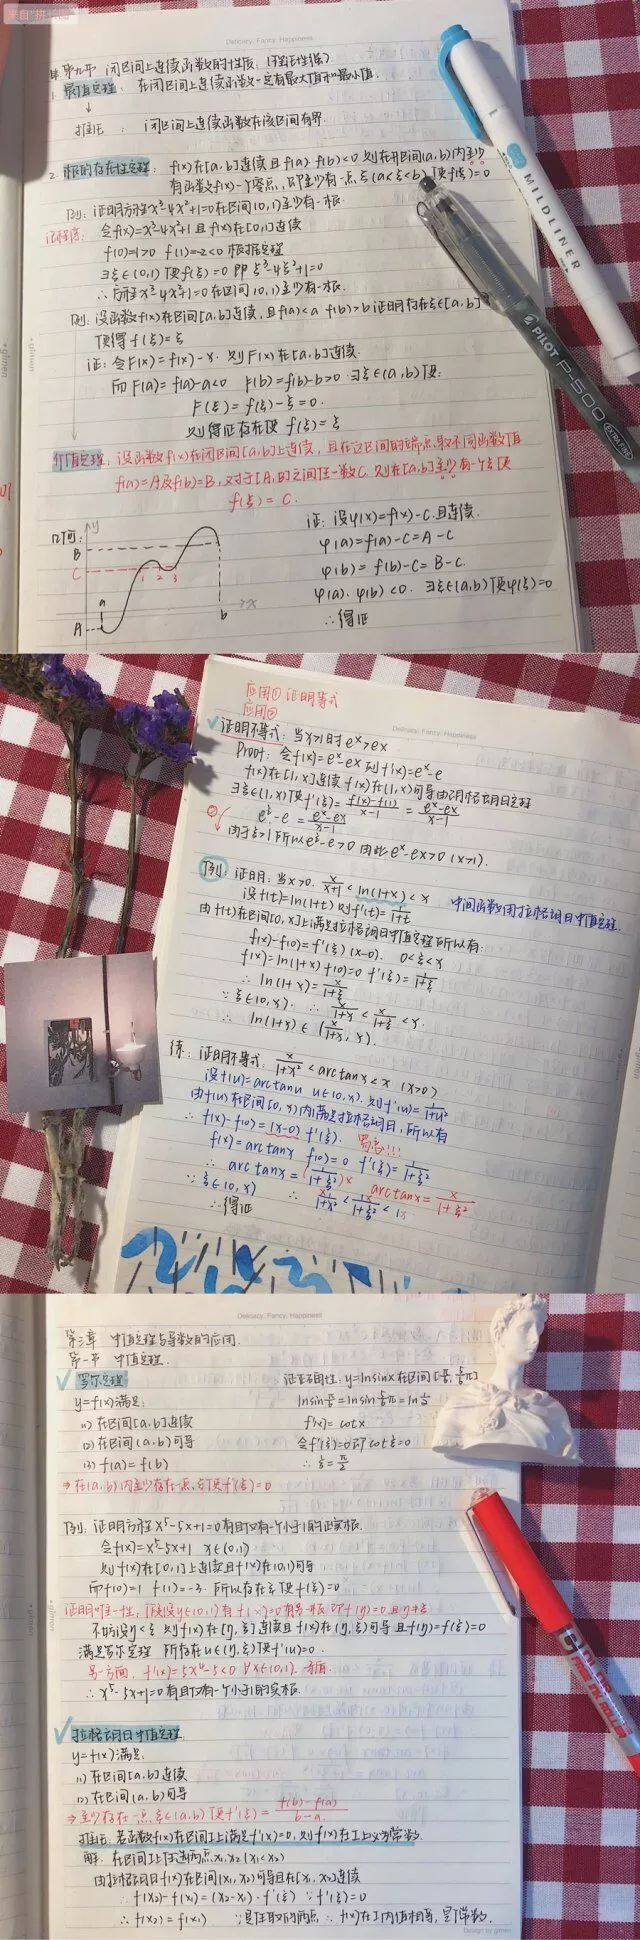 来自"拼
Delicacy, Fancy, Happiness
第九节 闭区间上连续函数的性质 (证正性练)
1. 最值定理: 在闭区间上连续函数一定有最大值和最小值.
推论: 闭区间上连续函数在该区间有界.
2. 根的存在性定理: f(x)在[a,b]连续且f(a)·f(b)<0 则在开区间(a,b)内至少
有函数f(x)一个零点, 即至少有一点ξ(a<ξ<b)使f(ξ)=0
例: 证明方程x³-4x²+1=0在区间(0,1)至少有一根.
证程序: 令f(x)=x³-4x²+1且f(x)在[0,1]连续
f(0)=1>0 f(1)=-2<0 根据定理
∃ξ∈(0,1)使f(ξ)=0 即 ξ³-4ξ²+1=0
∴方程x³-4x²+1=0在区间(0,1)至少有一根.
例: 设函数f(x)在区间[a,b]连续, 且f(a)<a f(b)>b 证明存在ξ∈[a,b]
使得f(ξ)=ξ
证: 令F(x)=f(x)-x. 则F(x)在[a,b]连续.
而F(a)=f(a)-a<0 F(b)=f(b)-b>0 ∃ξ∈(a,b)使:
F(ξ)=f(ξ)-ξ=0.
则得证存在使 f(ξ)=ξ
介值定理: 设函数f(x)在闭区间[a,b]上连续, 且在这区间的端点取不同函数值
f(a)=A及f(b)=B, 对于[A,B]之间任一数C. 则在[a,b]至少有一个ξ使
f(ξ)=C.
几何:
y
B
C
A
a
1 2 3
b
x
证: 设φ(x)=f(x)-C.且连续.
φ(a)=f(a)-C=A-C
φ(b)=f(b)-C=B-C.
φ(a)·φ(b)<0. ∃ξ∈(a,b)使φ(ξ)=0
∴得证
MILDLINER
PILOT P-500 EXTRA FINE
gimen
应用① 证明等式
应用②
Delicacy, Fancy, Happiness
证明不等式: 当x>1时eˣ>ex
Proof: 令f(x)=eˣ-ex 则f'(x)=eˣ-e
f(x)在[1,x]连续 f(x)在(1,x)可导由拉格朗日定理
∃ξ∈(1,x)使f'(ξ)=f(x)-f(1)/x-1=eˣ-ex/x-1
e^ξ-e=eˣ-ex/x-1
由于ξ>1 所以e^ξ-e>0 由此eˣ-ex>0 (x>1).
例: 证明: 当x>0. x/x+1<ln(1+x)<x
中间函数用拉格朗日中值定理.
设f(t)=ln(1+t) 则f'(t)=1/1+t
由f(t)在区间[0,x]上满足拉格朗日中值定理 所以有:
f(x)-f(0)=f'(ξ)(x-0). 0<ξ<x
f(x)=ln(1+x) f(0)=0 f'(ξ)=1/1+ξ
∴ ln(1+x)=x/1+ξ
∵ξ∈(0,x). ∴ x/1+x<x/1+ξ<x.
∴ ln(1+x)∈(x/1+x,x).
练: 证明不等式: x/1+x²<arctanx<x (x>0)
设f(u)=arctanu u∈(0,x).则f'(u)=1/1+u²
由f(u)在区间(0,x)内满足拉格朗日, 所以有
∴ f(x)-f(0)=(x-0)f'(ξ).
f(x)=arctanx f(0)=0 f'(ξ)=1/1+ξ²
∴ arctanx=(1/1+ξ²)x arctanx=x/1+ξ²
∵ξ∈(0,x) ∴ x/1+x²<x/1+ξ²<x
∴得证
Delicacy, Fancy, Happiness
第三章 中值定理与导数的应用.
第一节 中值定理.
罗尔定理
y=f(x)满足:
(1) 在区间[a,b]连续
(2) 在区间(a,b)可导
(3) f(a)=f(b)
⇒在(a,b)内至少存在一点ξ使f'(ξ)=0
证正确性: y=lnsinx在区间[π/6,5/6π]
lnsinπ/6=lnsin5/6π=ln1/2
f'(x)=cotx
令f'(ξ)=0即cotξ=0
∴ξ=π/2
例: 证明方程x⁵-5x+1=0有且仅有一个小于1的正实根.
令f(x)=x⁵-5x+1 x∈(0,1)
则f(x)在[0,1]上连续且f(x)在(0,1)可导
而f(0)=1 f(1)=-3. 所以存在ξ使f(ξ)=0
证明唯一性, 假设y∈(0,1)有f(x)=0有另一根 即f(y)=0且y≠ξ
不妨设y<ξ 则f(x)在[y,ξ]连续且f(x)在(y,ξ)可导 且f(y)=f(ξ)=0
满足罗尔定理 所存在u∈(y,ξ)使f'(u)=0.
另一方面, f'(x)=5x⁴-5<0 ∀x∈(0,1). 矛盾.
∴x⁵-5x+1=0有且仅有一个小于1的实根.
拉格朗日中值定理
y=f(x)满足:
(1) 在区间[a,b]连续
(2) 在区间(a,b)可导
⇒至少存在一点ξ∈(a,b)使f'(ξ)=f(b)-f(a)/b-a
推论: 若函数f(x)在区间I上满足f'(x)=0, 则f(x)在I上必为常数.
解: 在区间I上任选两点x₁,x₂(x₁<x₂)
由拉格朗日f(x)在区间(x₁,x₂)可导且在[x₁,x₂]连续
∴f(x₂)-f(x₁)=(x₂-x₁)·f'(ξ) ∵f'(ξ)=0
∴f(x₂)=f(x₁) ∵是任取的两点 ∴f(x)在I内值相等, 是个常数.
Design by gimen
gimen